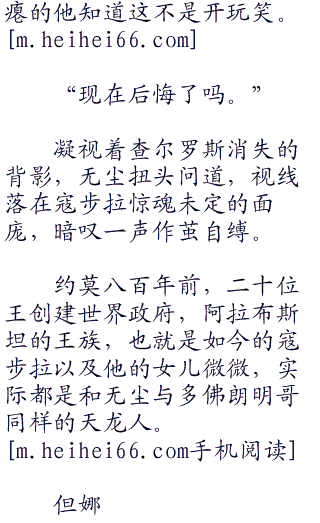 瘪的他知道这不是开玩笑。
[m.heihei66.com]
“现在后悔了吗。”
凝视着查尔罗斯消失的
背影，无尘扭头问道，视线
落在寇步拉惊魂未定的面
庞，暗叹一声作茧自缚。
约莫八百年前，二十位
王创建世界政府，阿拉布斯
坦的王族，也就是如今的寇
步拉以及他的女儿微微，实
际都是和无尘与多佛朗明哥
同样的天龙人。
[m.heihei66.com手机阅读]
但娜